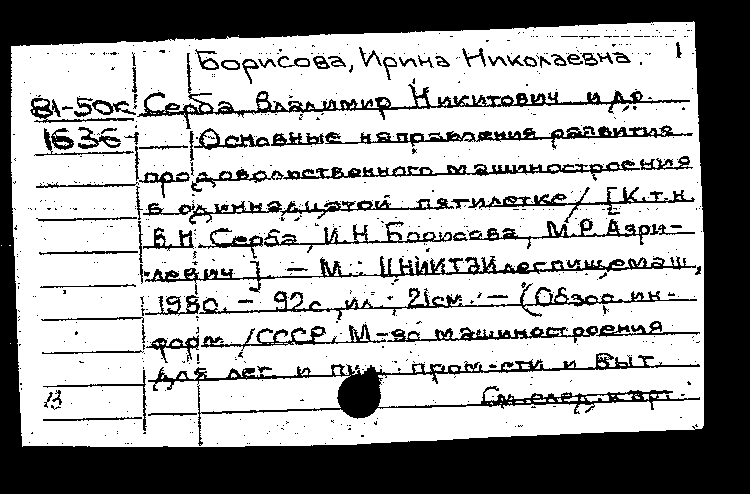 Борисова, Ирина Николаевна. 1
81-50к Серба, Владимир Никитович и др.
1636 Основные направления развития
продовольственного машиностроения
в одиннадцатой пятилетке / [К.т.н.
В.Н. Серба, И.Н. Борисова, М.Р. Азри-
левич]. — М.: ЦНИИТЭИлегпищемаш,
1980. — 92с., ил.; 21см. — (Обзор. ин-
форм. / СССР. М-во машиностроения
для лег. и пищ. пром-сти и быт.
13 См. след. карт.